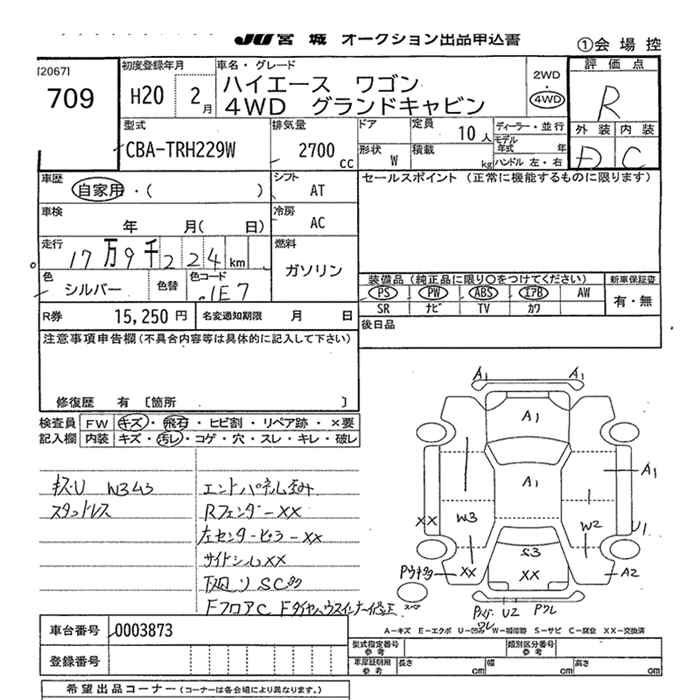 JU 宮 城 オークション出品申込書
①会 場 控
[2067]
709
初度登録年月
H20 2月
車名・グレード
ハイエース ワゴン
4WD グランドキャビン
2WD
4WD
評 価 点
R
外 装 内 装
D C
型式
CBA-TRH229W
排気量
2700 cc
ドア
形状 W
定員 10 人
積載 kg
ディーラー・並行
モデル年式 年
ハンドル 左・右
車歴
自家用・( )
シフト AT
セールスポイント (正常に機能するものに限ります)
車検
年 月( 日)
冷房 AC
走行
17万9千224km
燃料
ガソリン
色
シルバー
色替
色コード
1E7
装備品 (純正品に限り○をつけてください)
新車保証書
PS PW ABS エアB AW
SR ナビ TV カワ
有・無
R券 15,250 円
名変通知期限 月 日
後日品
注意事項申告欄 (不具合内容等は具体的に記入して下さい)
修復歴 有 [箇所 ]
検査員 FW キズ・飛石・ヒビ割・リペア跡・×要
記入欄 内装 キズ・汚レ・コゲ・穴・スレ・キレ・破レ
キズ・U W3 43
スタットレス
エンドパネル歪み
Rフェンダー XX
左センターピラー XX
サイドシル XX
下廻り SC多
FフロアC
A1 A1
A1
A1
A1
XX
W3
W2
U1
S3
XX
XX
A2
U2
A-キズ E-エクボ U-凹み W-補修跡 S-サビ C-腐食 XX-交換済
車台番号 0003873
登録番号
型式指定番号 参考
類別区分番号 参考
車庫証明用 参考 長さ cm 幅 cm 高さ cm
希望出品コーナー (コーナーは各会場により異なります。)